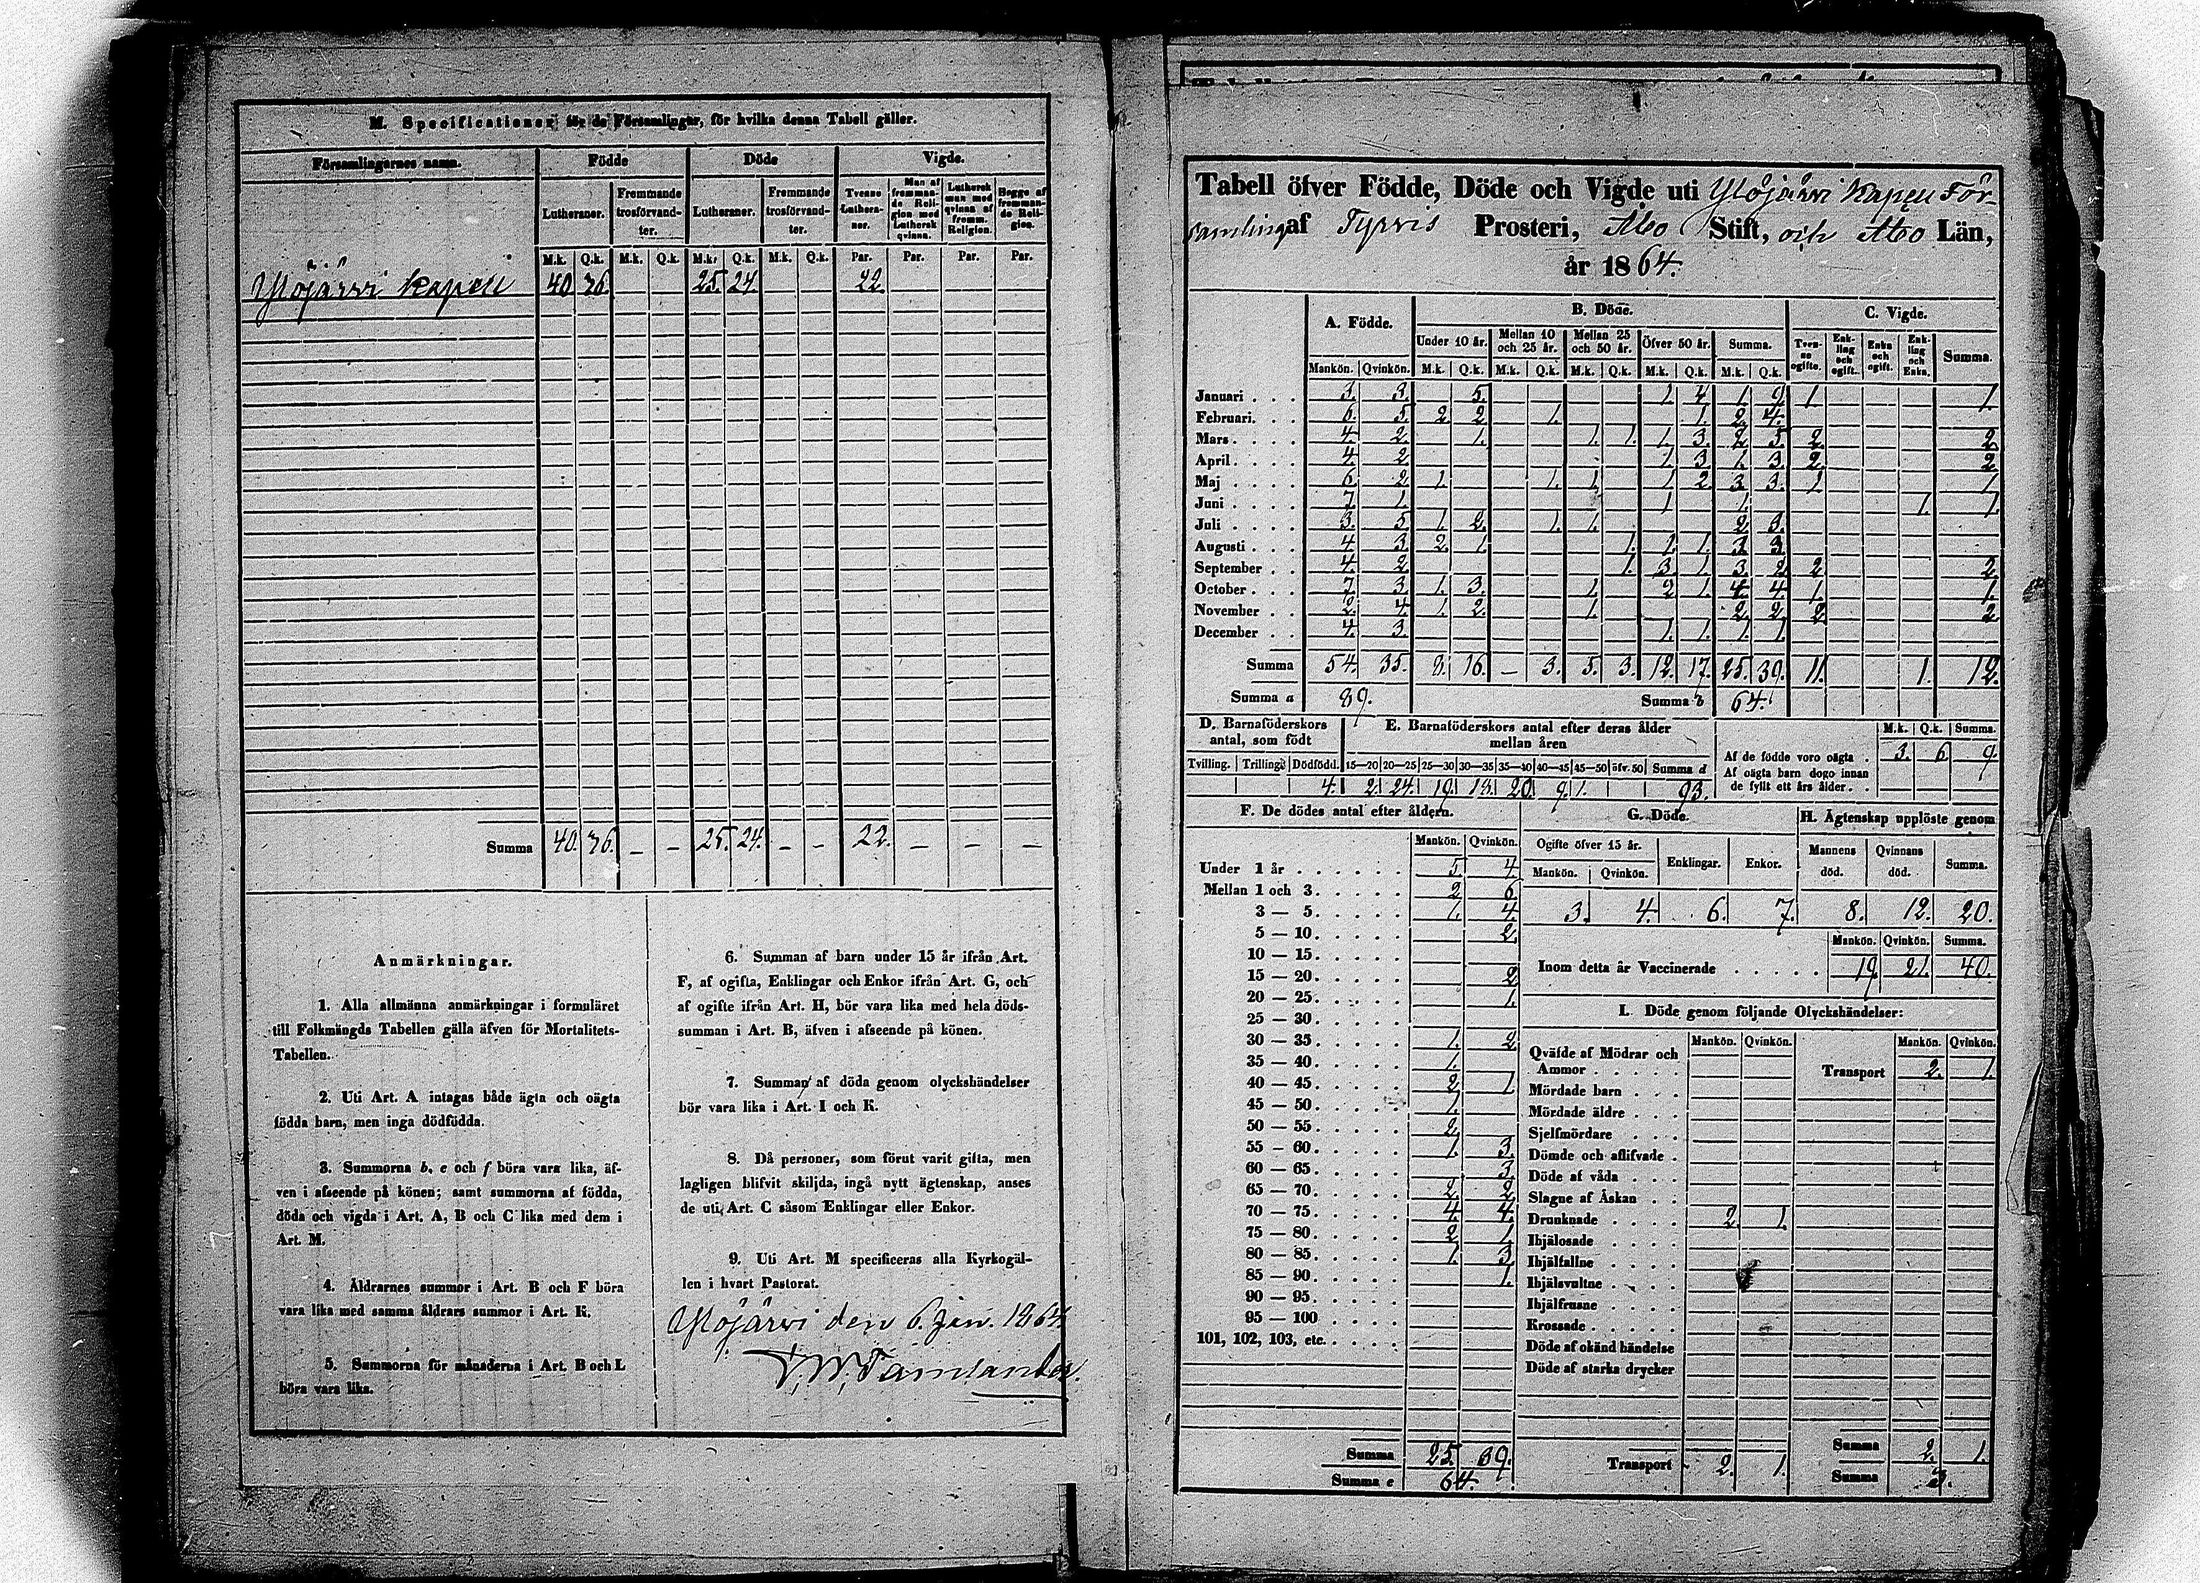 M. Specificationer för de Församlingar, för hvilka denna Tabell gäller.
Församlingarnes namn. Födde Döde Vigde.
Lutheraner. Fremmande trosförvandter. Lutheraner. Fremmande trosförvandter. Tvenne Lutheraner. Man af fremmande Religion med Luthersk qvinna. Luthersk man med qvinna af fremm. Religion. Begge af fremmande Religion.
M.k. Q.k. M.k. Q.k. M.k. Q.k. M.k. Q.k. Par. Par. Par. Par.
Ylöjärvi Kapell 40 36 25. 24 22
Summa 40. 36. — — 25. 24. — — 22. — — —
Anmärkningar.
1. Alla allmänna anmärkningar i formuläret
till Folkmängds Tabellen gälla äfven för Mortalitets-
Tabellen.
2. Uti Art. A intagas både ägta och oägta
födda barn, men inga dödfödda.
3. Summorna b, e och f böra vara lika, äf-
ven i afseende på könen; samt summorna af födda,
döda och vigda i Art. A, B och C lika med dem i
Art. M.
4. Åldrarnes summor i Art. B och F böra
vara lika med samma åldrars summor i Art. K.
5. Summorna för månaderna i Art. B och L
böra vara lika.
6. Summan af barn under 15 år ifrån Art.
F, af ogifta, Enklingar och Enkor ifrån Art. G, och
af ogifte ifrån Art. H, bör vara lika med hela döds-
summan i Art. B, äfven i afseende på könen.
7. Summan af döda genom olyckshändelser
bör vara lika i Art. I och K.
8. Då personer, som förut varit gifta, men
lagligen blifvit skiljda, ingå nytt ägtenskap, anses
de uti Art. C såsom Enklingar eller Enkor.
9. Uti Art. M specificeras alla Kyrkogäl-
len i hvart Pastorat.
Ylöjärvi den 6. Jan. 1864.
Tabell öfver Födde, Döde och Vigde uti Ylöjärvi Kapell För-
samling af Tyrvis Prosteri, Åbo Stift, och Åbo Län,
år 1864.
A. Födde. B. Döde. C. Vigde.
Under 10 år. Mellan 10 och 25 år. Mellan 25 och 50 år. Öfver 50 år. Summa. Tvenne ogifte. Enkling och ogift. Enka och ogift. Enkling och Enka. Summa.
Mankön. Qvinkön. M.k. Q.k. M.k. Q.k. M.k. Q.k. M.k. Q.k. M.k. Q.k.
Januari . . . 3. 3. 5. 1. 4. 1. 9. 1. 1.
Februari. . . 6. 5. 2. 2. 1. 1. 2. 4.
Mars . . . . 4. 2. 1. 1. 1. 1. 3. 2. 5. 2. 2.
April. . . . 4. 2. 1. 3. 1. 3. 2. 2.
Maj . . . . 6. 2. 1. 1. 1. 1. 2. 3. 3. 1. 1.
Juni . . . . 7. 1. 1. 1. 1. 1.
Juli . . . . 3. 5. 1. 2. 1. 1. 2. 3.
Augusti . . . 4. 3. 2. 1. 1. 1. 1. 3. 3.
September . . 4. 2. 1. 3. 1. 3. 2. 2. 2.
October . . . 7. 3. 1. 3. 1. 2. 1. 4. 4. 1. 1.
November . . 2. 4. 1. 2. 1. 2. 2. 2. 2.
December . . 4. 3. 1. 1. 1. 1.
Summa 54. 35. 8. 16. — 3. 5. 3. 12. 17. 25. 39. 11. 1. 12.
Summa a 89. Summa b 64.
D. Barnaföderskors antal, som födt
Tvilling. Trilling. Dödfödd.
4.
E. Barnaföderskors antal efter deras ålder mellan åren
15—20 20—25 25—30 30—35 35—40 40—45 45—50 öfv. 50 Summa d
2. 24. 19. 18. 20. 9. 1. 93.
M.k. Q.k. Summa.
Af de födde voro oägta . 3. 6. 9.
Af oägta barn dogo innan
de fyllt ett års ålder. .
F. De dödes antal efter åldern.
Mankön. Qvinkön.
Under 1 år . . . . . . . 5 4.
Mellan 1 och 3. . . . . . 2 6.
3 — 5. . . . . . 1. 4.
5 — 10. . . . . 2.
10 — 15. . . . .
15 — 20. . . . . 2.
20 — 25. . . . . 1.
25 — 30. . . . .
30 — 35. . . . . 1. 2.
35 — 40. . . . . 1.
40 — 45. . . . . 2. 1.
45 — 50. . . . . 1.
50 — 55. . . . . 2.
55 — 60. . . . . 1. 3.
60 — 65. . . . . 3.
65 — 70. . . . . 2. 2.
70 — 75. . . . . 4. 4.
75 — 80. . . . . 2. 1.
80 — 85. . . . . 1. 3.
85 — 90. . . . . 1.
90 — 95. . . . .
95 — 100 . . . .
101, 102, 103, etc. . . . .
Summa 25. 39.
Summa e 64.
G. Döde.
Ogifte öfver 15 år. Enklingar. Enkor.
Mankön. Qvinkön.
3. 4. 6. 7.
H. Ägtenskap upplöste genom
Mannens död. Qvinnans död. Summa.
8. 12. 20.
Mankön. Qvinkön. Summa.
Inom detta år Vaccinerade . . . . . 19. 21. 40.
I. Döde genom följande Olyckshändelser:
Mankön. Qvinkön. Mankön. Qvinkön.
Qväfde af Mödrar och
Ammor . . . . . Transport 2. 1.
Mördade barn . . .
Mördade äldre . . .
Sjelfmördare . . .
Dömde och aflifvade .
Döde af våda . . .
Slagne af Åskan . .
Drunknade . . . . 2. 1.
Ihjälosade . . . .
Ihjälfallne . . . .
Ihjälsvultne . . . .
Ihjälfrusne . . . .
Krossade . . . . .
Döde af okänd händelse
Döde af starka drycker
Transport 2. 1.
Summa 2. 1.
Summa 3.